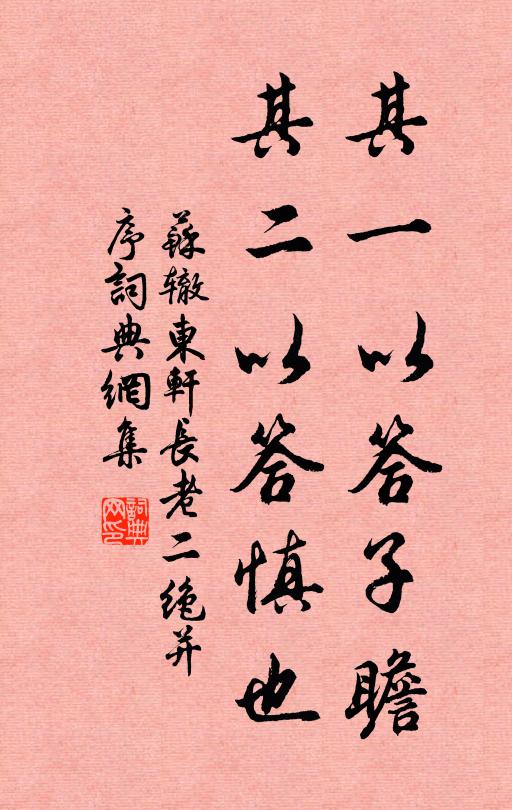 其一以答子瞻
其二以答慎也
蘇辙東軒長老二绝并
序詞典網集
詞典
网印